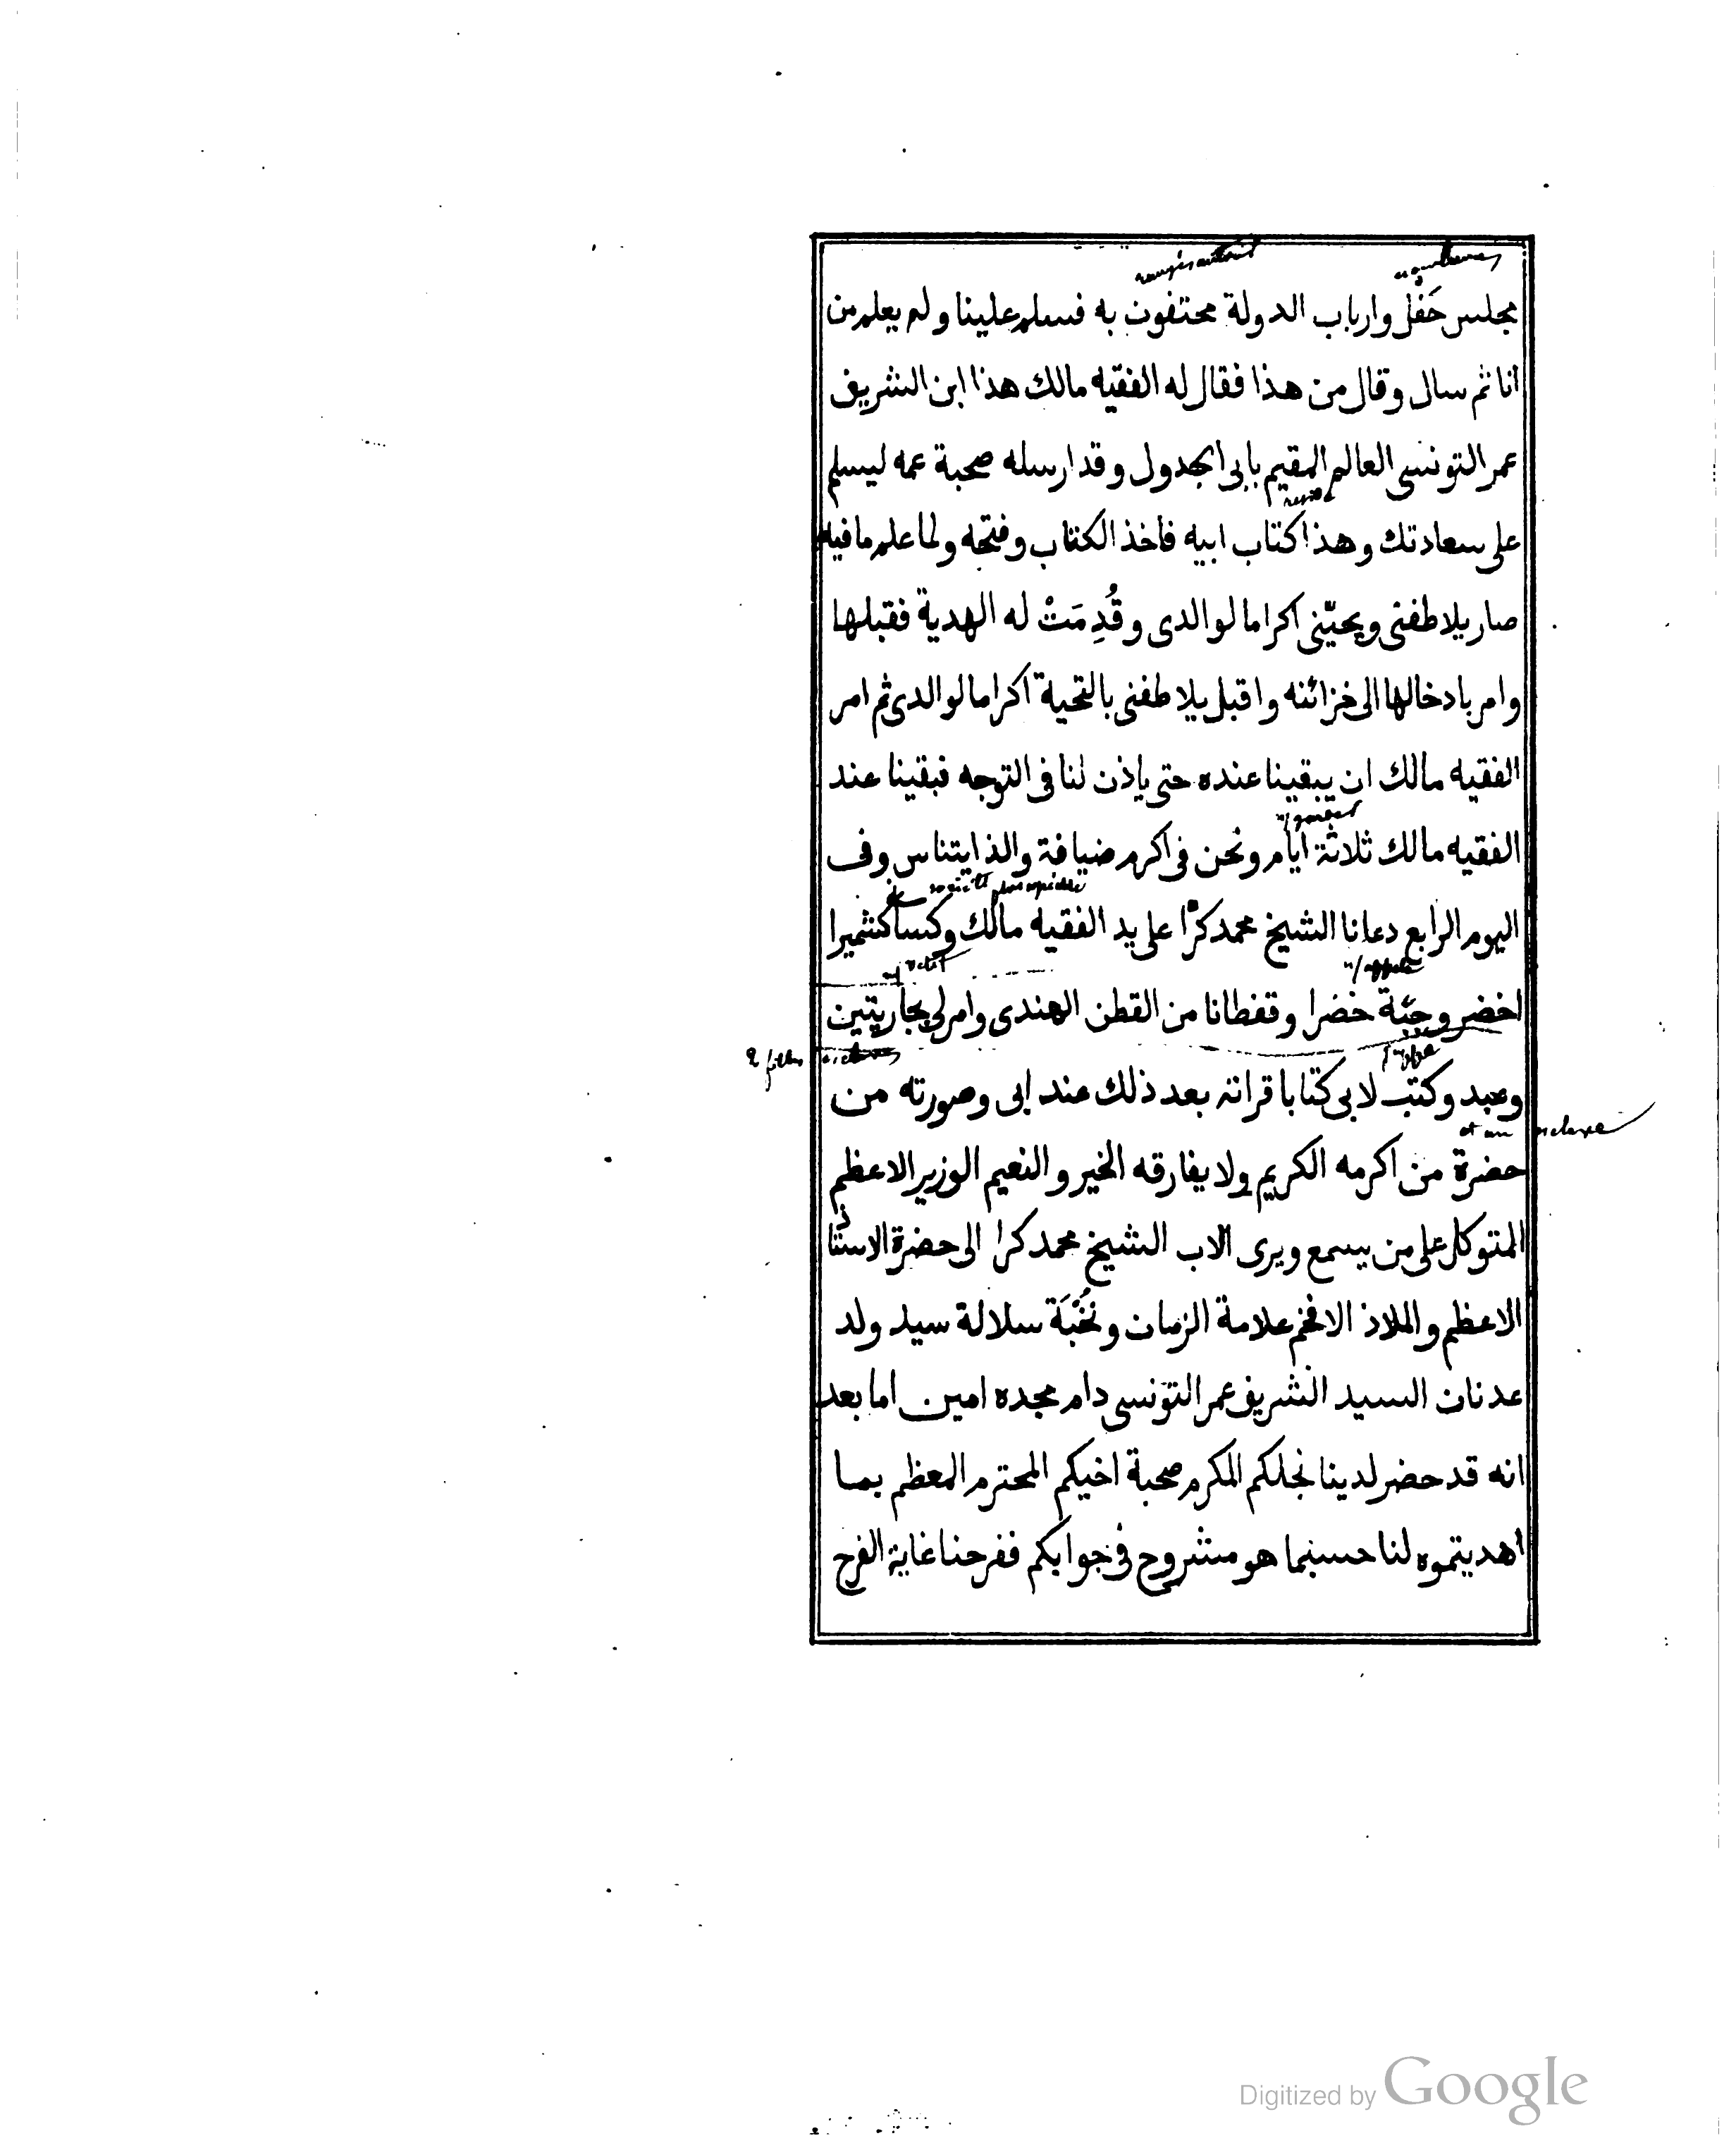 مجلس حَفْل وارباب الدولة محتفون به فسلم علينا ولم يعلم من
انا ثم سال وقال من هذا فقال له الفقيه مالك هذا ابن الشريف
عمر التونسى العالم المقيم بابى الجدول وقد ارسله صحبة عمه ليسلم
على سعادتك وهذا كتاب ابيه فاخذ الكتاب وفتحه ولما علم ما فيه
صار يلاطفنى ويحيّنى اكراما لوالدى وقُدِمَتْ له الهدية فقبلها
وامر بادخالها الى خزائنه واقبل يلاطفنى بالتحية اكراما لوالدى ثم امر
الفقيه مالك ان يبقينا عنده حتى ياذن لنا فى التوجه فبقينا عند
الفقيه مالك ثلاثة ايام ونحن فى اكرم ضيافة والذ ايتناس وفى
اليوم الرابع دعانا الشيخ محمد كرّا على يد الفقيه مالك وكسا كشميرا
اخضر وجبّة خضرا وقفطانا من القطن الهندى وامر لى بجاريتين
2 filles esclaves
وعبد وكتب لابى كتابا قراته بعد ذلك عند ابى وصورته من
et un esclave
حضرة من اكرمه الكريم ولا يفارقه الخير والنعيم الوزير الاعظم
المتوكل على من يسمع ويرى الاب الشيخ محمد كرا الى حضرة الاستاذ
الاعظم والملاذ الافخم علامة الزمان ونُخْبَة سلالة سيد ولد
عدنان السيد الشريف عمر التونسى دام مجده امين اما بعد
انه قد حضر لدينا نجلكم المكرم صحبة اخيكم المحترم المعظم بما
اهديتموه لنا حسبما هو مشروح فى جوابكم ففرحنا غاية الفرح
Digitized by Google